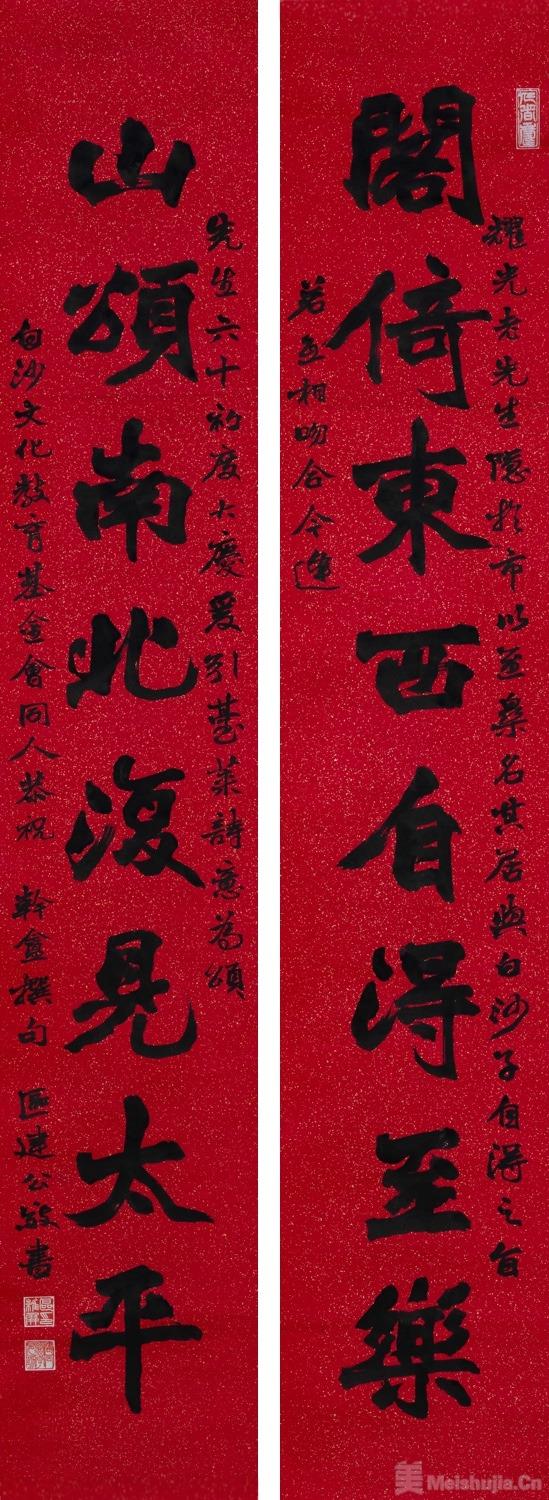 閣倚東西自得至樂
耀光老先生隱於市以至樂名其居與白沙子自得之旨
若互相吻合今逢
山頌南北復見太平
先生六十初度大慶爰引臺萊詩意為頌
白沙文化教育基金會同人恭祝 幹盦撰句 區建公敬書
美 Meishujia.Cn